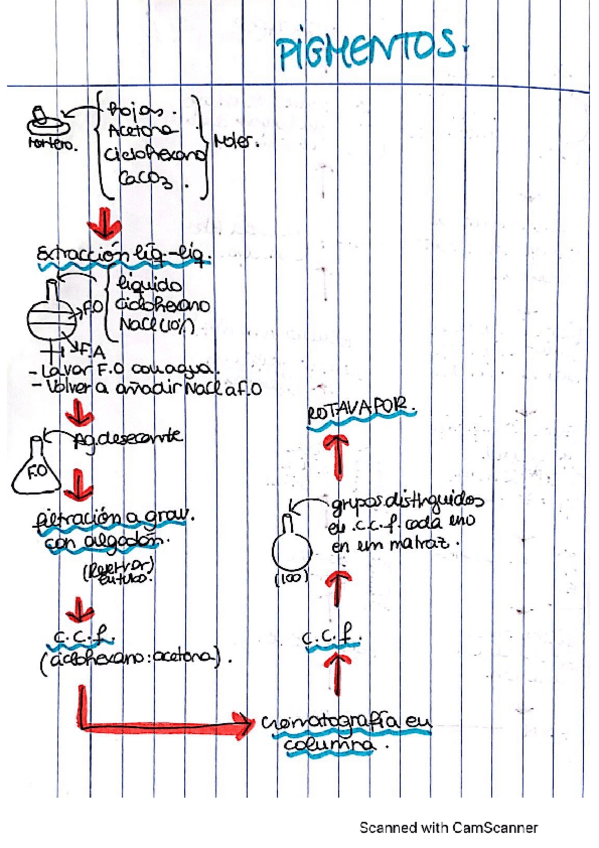 PIGMENTOS.
Mortero.
Hojas.
Acetona
Ciclohexano
CaCO3.
Moler.
Extracción líq-líq.
líquido
ciclohexano
NaCl (10%)
F.O
F.A
- Lavar F.O con agua.
- Volver a añadir NaCl a F.O
Ag. desecante
F.O
filtración a grav.
con algodón.
(Reservar)
en tubo.
c.c.f.
(ciclohexano:acetona).
Cromatografía en
columna.
c.c.f.
grupos distinguidos
en c.c.f. cada uno
en un matraz.
(100)
ROTAVAPOR.
Scanned with CamScanner